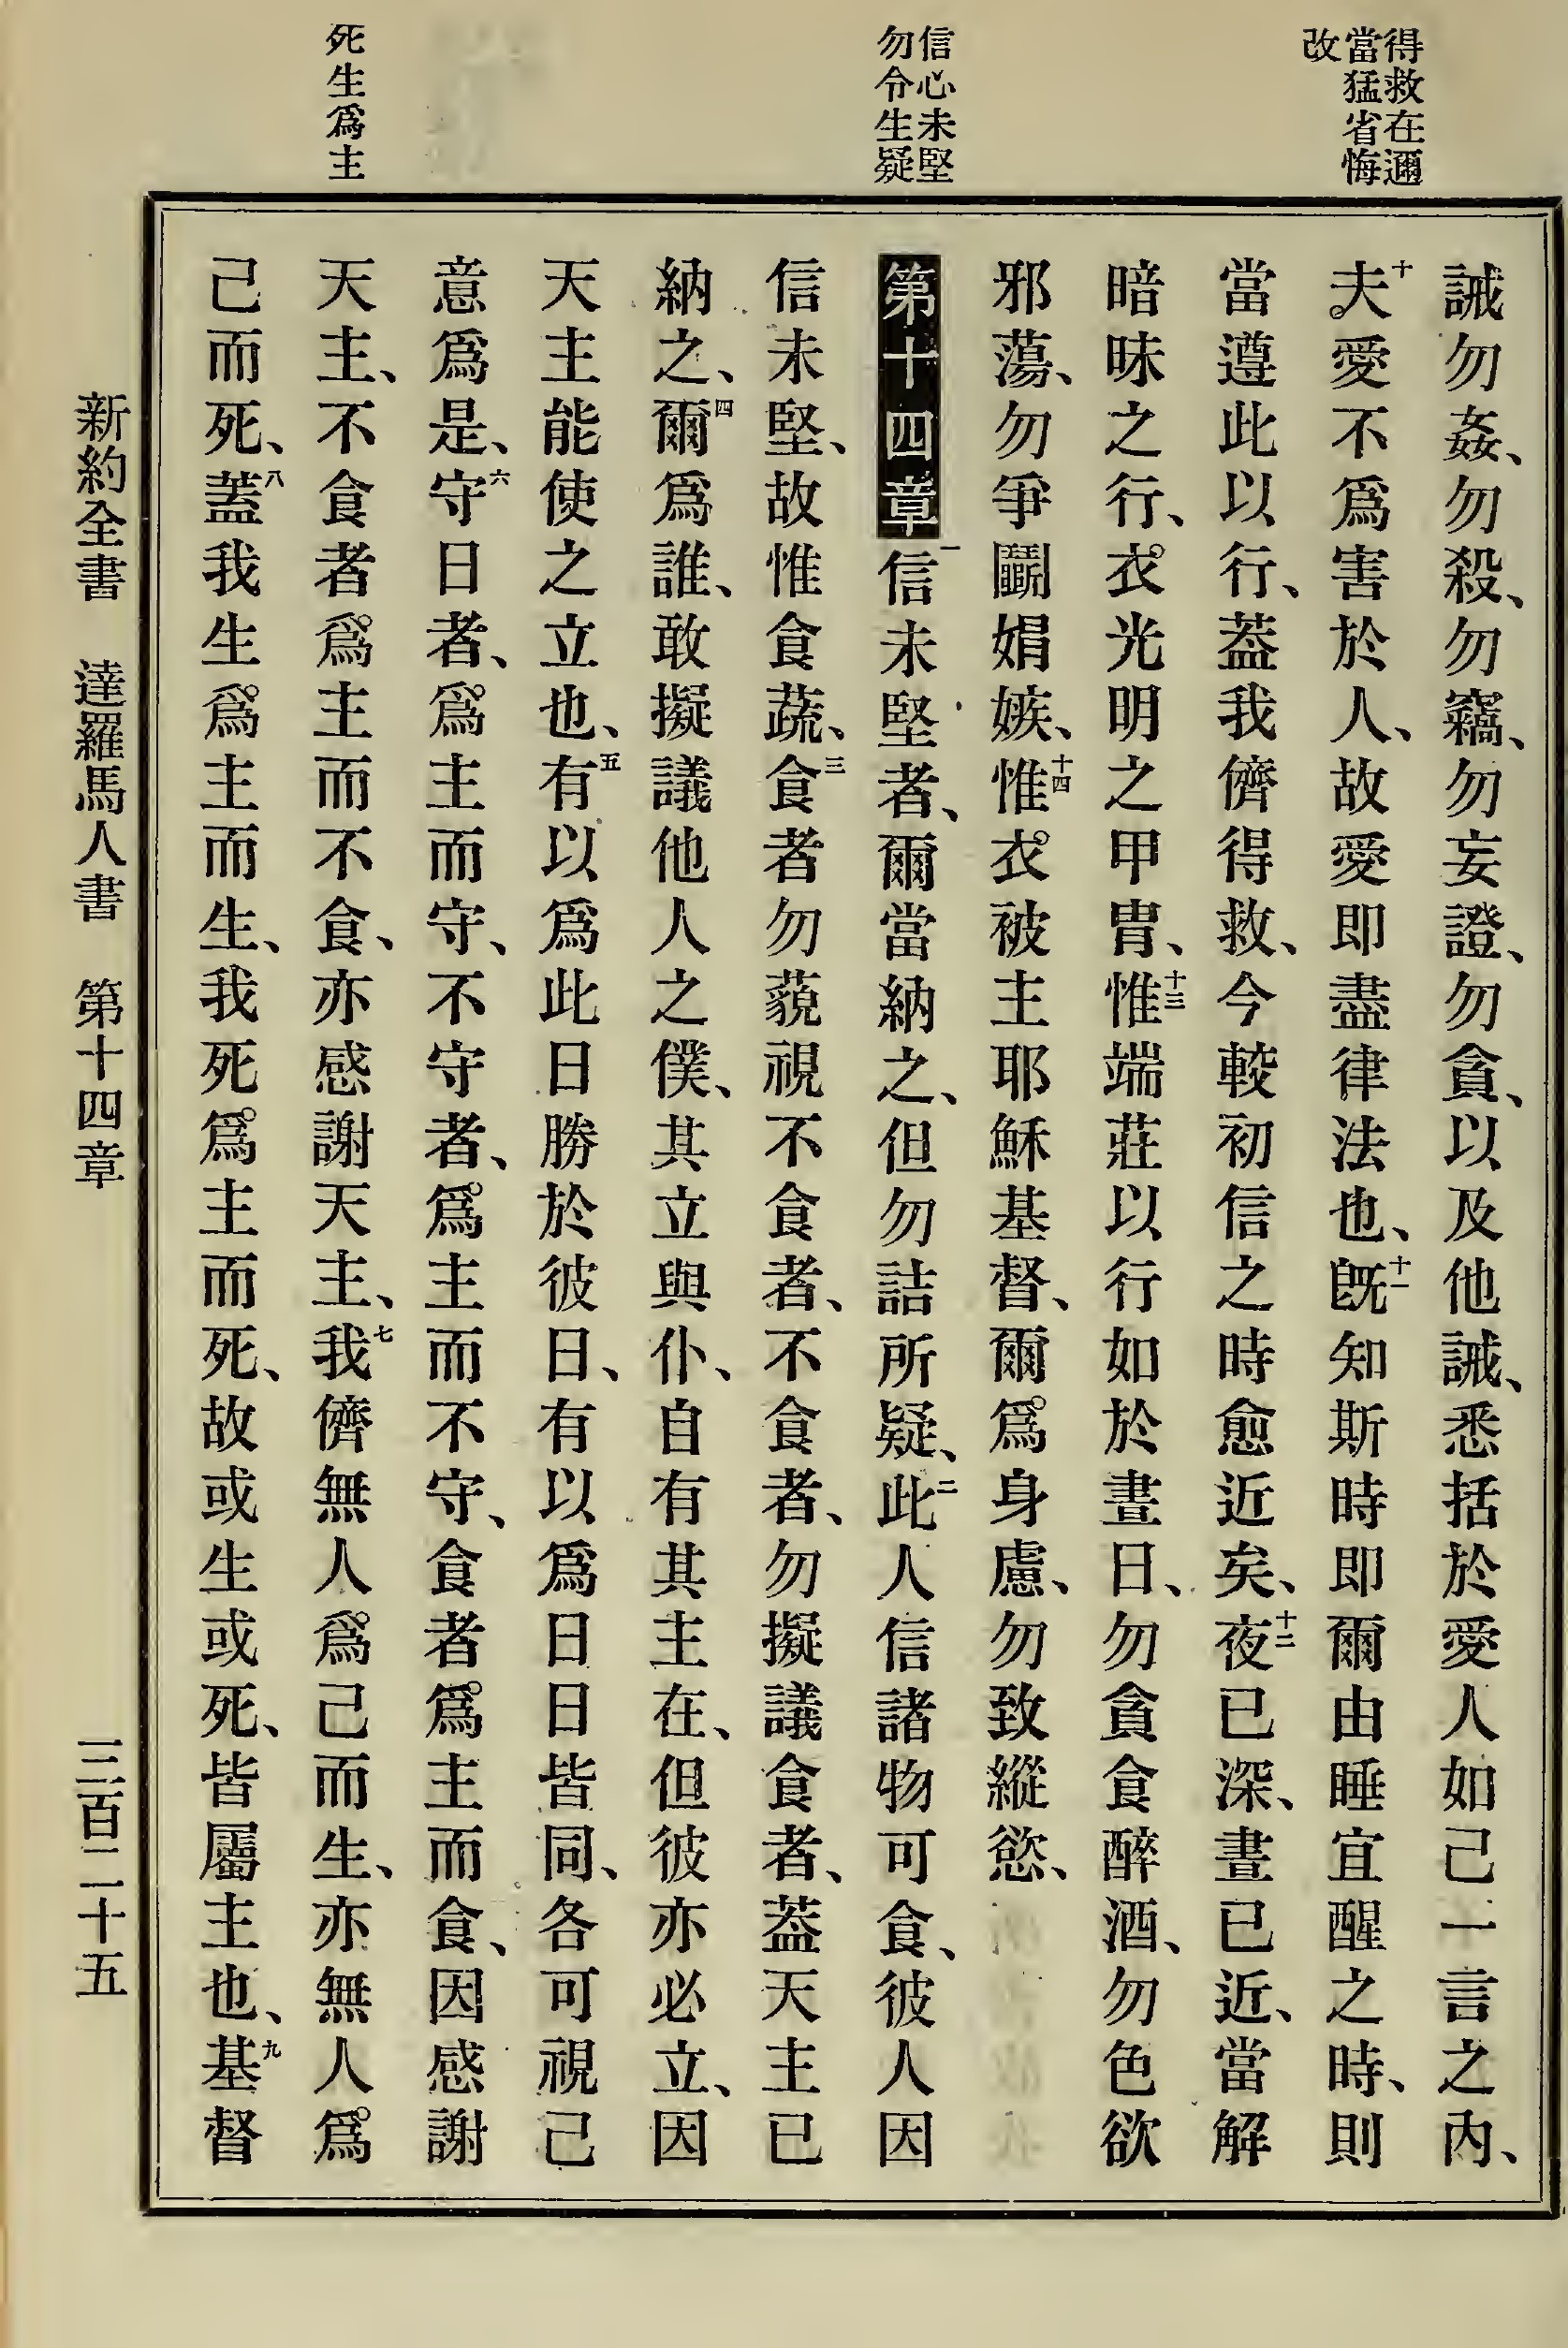 得救在邇
當猛省悔
改
信心未堅
勿令生疑
死生爲主
誡勿姦、勿殺、勿竊、勿妄證、勿貪、以及他誡、悉括於愛人如己一言之內、
十夫愛不爲害於人、故愛即盡律法也、十一既知斯時即爾由睡宜醒之時、則
當遵此以行、蓋我儕得救、今較初信之時愈近矣、十二夜已深、晝已近、當解
暗昧之行、衣光明之甲冑、十三惟端莊以行如於晝日、勿貪食醉酒、勿色欲
邪蕩、勿爭鬭娼嫉、十四惟衣被主耶穌基督、爾爲身慮、勿致縱慾、
第十四章 一信未堅者、爾當納之、但勿詰所疑、二此人信諸物可食、彼人因
信未堅、故惟食蔬、三食者勿藐視不食者、不食者、勿擬議食者、蓋天主已
納之、四爾爲誰、敢擬議他人之僕、其立與仆、自有其主在、但彼亦必立、因
天主能使之立也、五有以爲此日勝於彼日、有以爲日日皆同、各可視己
意爲是、六守日者、爲主而守、不守者、爲主而不守、食者爲主而食、因感謝
天主、不食者爲主而不食、亦感謝天主、七我儕無人爲己而生、亦無人爲
己而死、八蓋我生爲主而生、我死爲主而死、故或生或死、皆屬主也、九基督
新約全書 達羅馬人書 第十四章 三百二十五